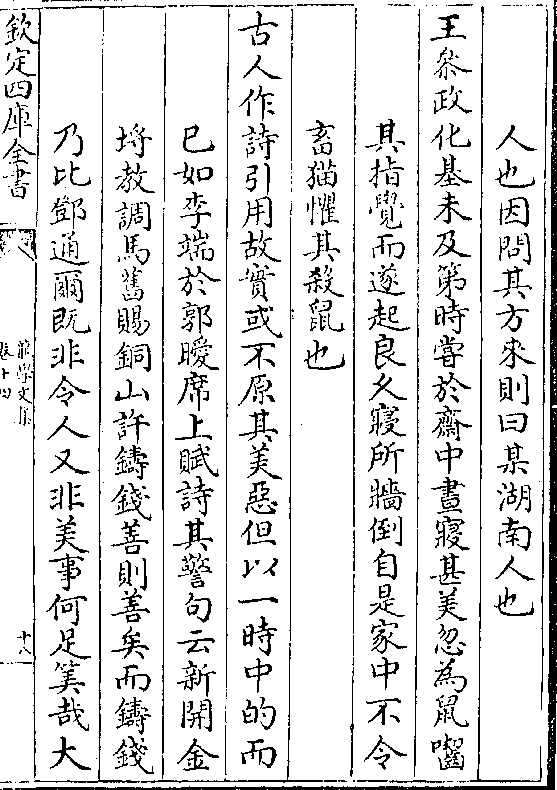 人也因問其方來則曰某湖南人也
王叅政化基未及第時嘗於齋中晝寢甚美忽為鼠囓
其指覺而遂起良久寢所牆倒自是家中不令
畜猫懼其殺鼠也
古人作詩引用故實或不原其美惡但以一時中的而
已如李端於郭曖席上賦詩其警句云新開金
埒教調馬舊賜銅山許鑄錢善則善矣而鑄錢
乃比鄧通爾既非令人又非美事何足筭哉大
欽定四庫全書
卷十四
十八